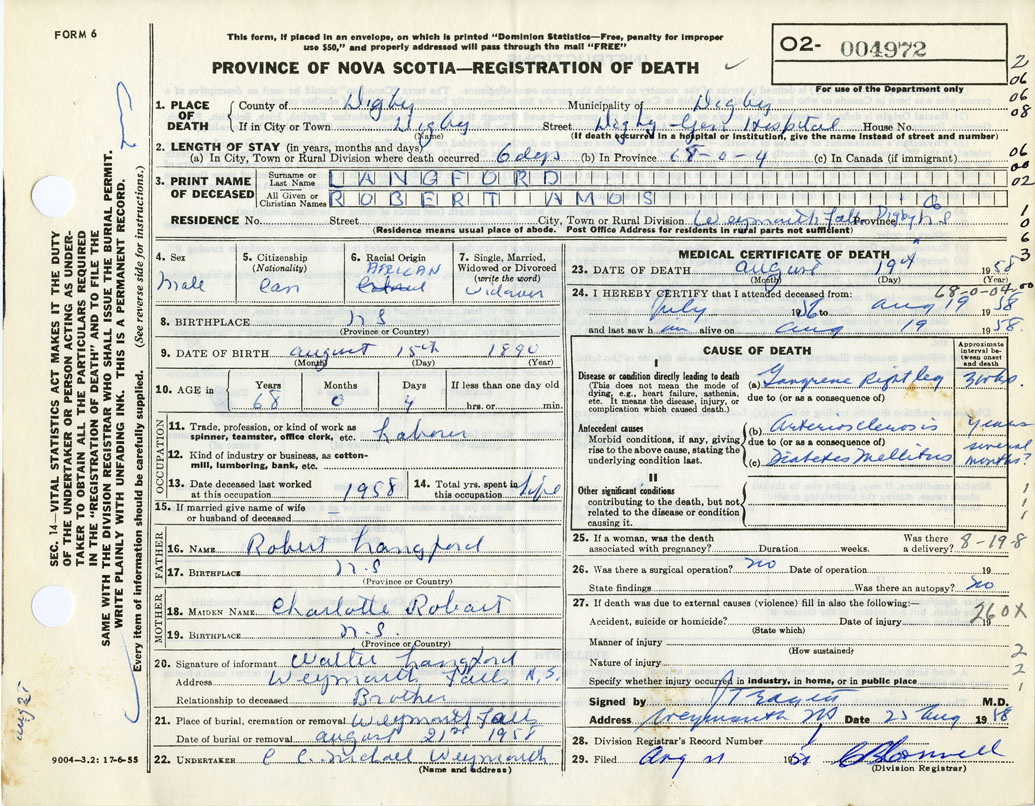 FORM 6
This form, if placed in an envelope, on which is printed "Dominion Statistics—Free, penalty for improper
use $50," and properly addressed will pass through the mail "FREE"
PROVINCE OF NOVA SCOTIA—REGISTRATION OF DEATH
O2- 004972
For use of the Department only
2
06
06
08
06
00
02
1
0
6
3
SEC. 14—VITAL STATISTICS ACT MAKES IT THE DUTY
OF THE UNDERTAKER OR PERSON ACTING AS UNDER-
TAKER TO OBTAIN ALL THE PARTICULARS REQUIRED
IN THE "REGISTRATION OF DEATH" AND TO FILE THE
SAME WITH THE DIVISION REGISTRAR WHO SHALL ISSUE THE BURIAL PERMIT.
WRITE PLAINLY WITH UNFADING INK. THIS IS A PERMANENT RECORD.
Every item of information should be carefully supplied. (See reverse side for instructions.)
1. PLACE OF DEATH County of Digby Municipality of Digby
If in City or Town Digby Street Digby Genl Hospital House No.
(Name) (If death occurred in a hospital or institution, give the name instead of street and number)
2. LENGTH OF STAY (in years, months and days)
(a) In City, Town or Rural Division where death occurred 6 days (b) In Province 68-0-4 (c) In Canada (if immigrant)
3. PRINT NAME OF DECEASED Surname or Last Name LANGFORD
All Given or Christian Names ROBERT AMOS
RESIDENCE No. Street City, Town or Rural Division Weymouth Falls Digby Co Province N.S
(Residence means usual place of abode. Post Office Address for residents in rural parts not sufficient)
4. Sex male
5. Citizenship (Nationality) Can
6. Racial Origin AFRICAN
7. Single, Married, Widowed or Divorced (write the word) widower
8. BIRTHPLACE N S
(Province or Country)
9. DATE OF BIRTH August 15th 1890
(Month) (Day) (Year)
10. AGE in Years 68 Months 0 Days 4 If less than one day old hrs. or min.
OCCUPATION
11. Trade, profession, or kind of work as spinner, teamster, office clerk, etc. Laborer
12. Kind of industry or business, as cotton-mill, lumbering, bank, etc.
13. Date deceased last worked at this occupation 1958 14. Total yrs. spent in this occupation life
15. If married give name of wife or husband of deceased —
FATHER
16. NAME Robert Langford
17. BIRTHPLACE N.S
(Province or Country)
MOTHER
18. MAIDEN NAME Charlotte Robart
19. BIRTHPLACE N.S.
(Province or Country)
20. Signature of informant Walter Langford
Address Weymouth Falls N.S.
Relationship to deceased Brother
21. Place of burial, cremation or removal Weymouth Falls
Date of burial or removal August 21st 1958
22. UNDERTAKER Weymouth
(Name and address)
9004—3.2: 17-6-55
MEDICAL CERTIFICATE OF DEATH
23. DATE OF DEATH August 19th 1958
(Month) (Day) (Year)
68-0-04-00
24. I HEREBY CERTIFY that I attended deceased from:
July 1956 to Aug 19 1958
and last saw h im alive on Aug 19 1958.
CAUSE OF DEATH
Approximate interval between onset and death
I
Disease or condition directly leading to death
(This does not mean the mode of
dying, e.g., heart failure, asthenia,
etc. It means the disease, injury, or
complication which caused death.)
(a) Gangrene Right leg 3 wks.
due to (or as a consequence of)
Antecedent causes
Morbid conditions, if any, giving
rise to the above cause, stating the
underlying condition last.
(b) Arteriosclerosis years
due to (or as a consequence of)
(c) Diabetes Mellitus several months?
II
Other significant conditions
contributing to the death, but not
related to the disease or condition
causing it.
1
1
1
25. If a woman, was the death associated with pregnancy? Duration weeks. Was there a delivery? 8-198
26. Was there a surgical operation? no Date of operation 19
State findings Was there an autopsy? no
27. If death was due to external causes (violence) fill in also the following:— 260X
Accident, suicide or homicide? Date of injury 19
(State which)
Manner of injury
(How sustained)
2
Nature of injury 2
Specify whether injury occurred in industry, in home, or in public place 1
Signed by M.D.
Address Weymouth NS Date 25 Aug 1958
28. Division Registrar's Record Number
29. Filed Aug 21 1958
(Division Registrar)